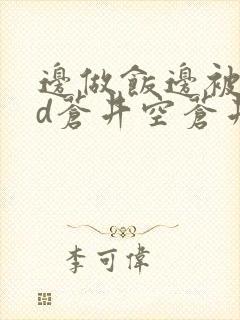 邊做飯邊被
d蒼井空蒼井
李可偉